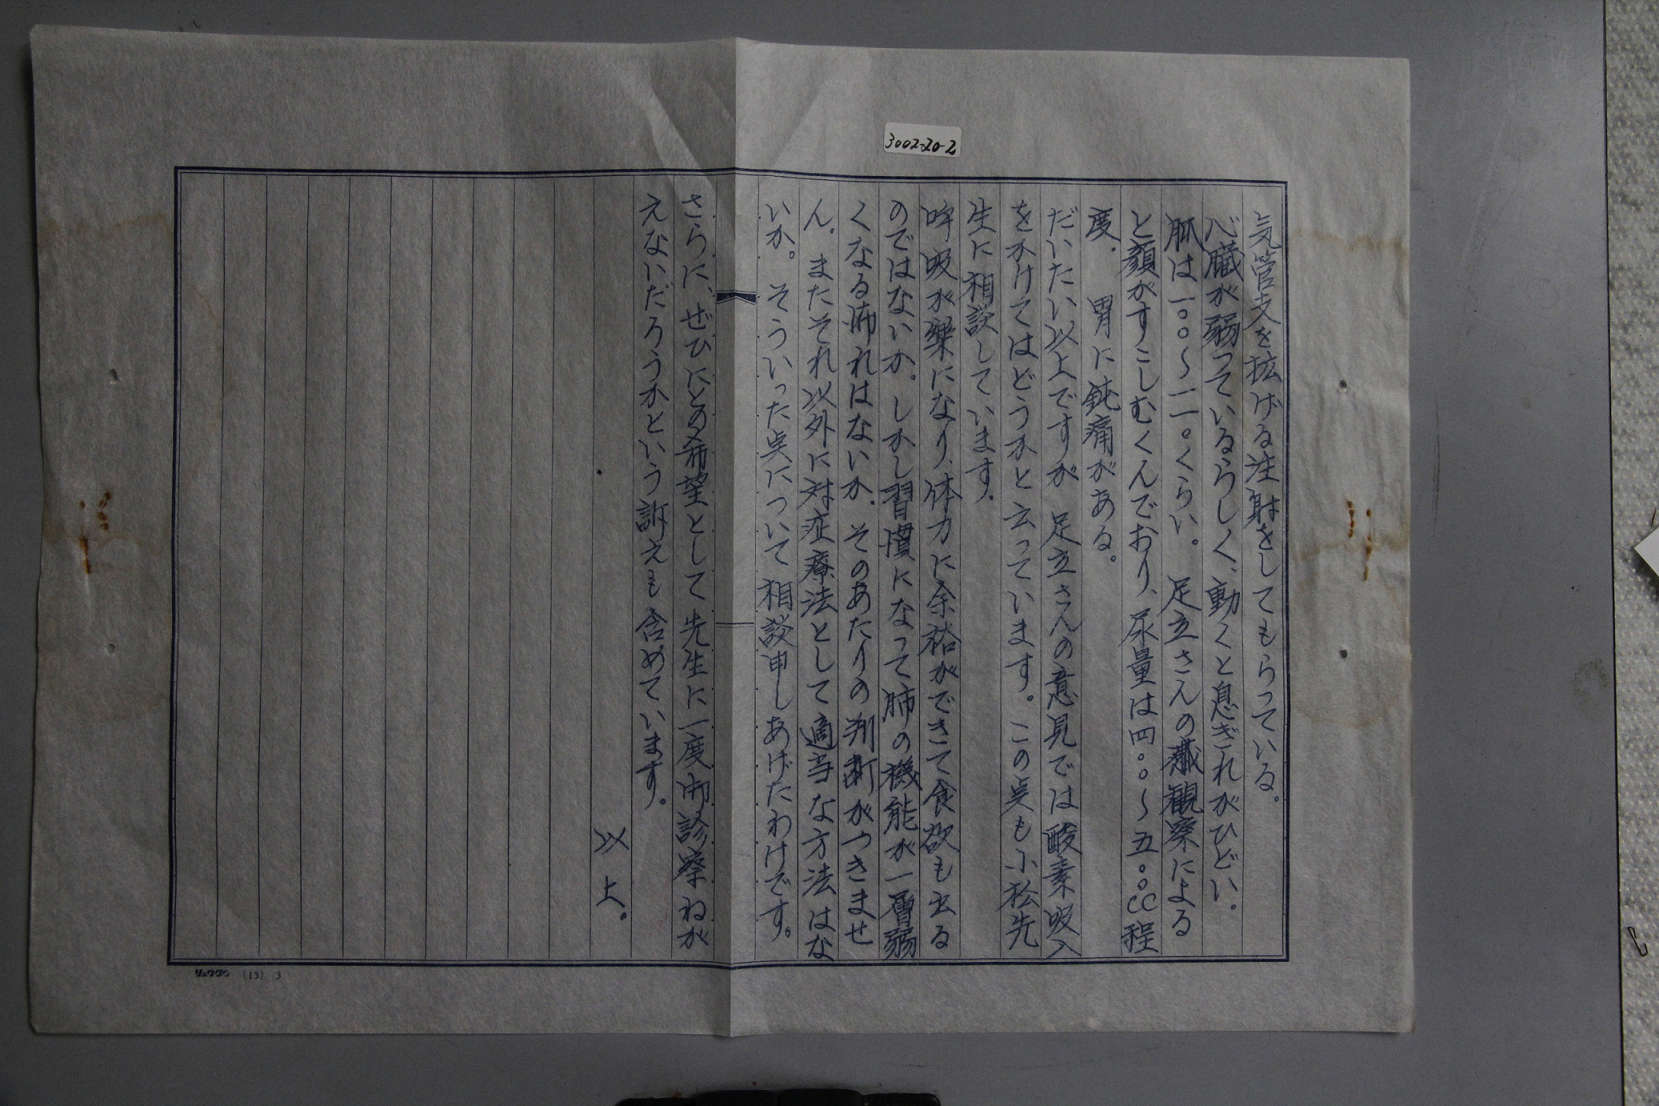 3002-20-2
気管支を拡げる注射をしてもらっている。
心臓が弱っているらしく、動くと息ぎれがひどい。
脈は一〇〇〜一一〇くらい。 足立さんの観察による
と顔がすこしむくんでおり、尿量は四〇〇〜五〇〇cc程
度。 胃に鈍痛がある。
だいたい以上ですが 足立さんの意見では酸素吸入
をかけてはどうかと云っています。この点も小松先
生に相談しています。
呼吸が楽になり、体力に余裕ができて食欲も出る
のではないか。しかし習慣になって肺の機能が一層弱
くなる怖れはないか。そのあたりの判断がつきませ
ん。またそれ以外に対症療法として適当な方法はな
いか。そういった点について相談申しあげたわけです。
さらに、ぜひにとの希望として先生に一度御診察ねが
えないだろうかという訴えも含めています。
以上。
リュウグウ (13) 3